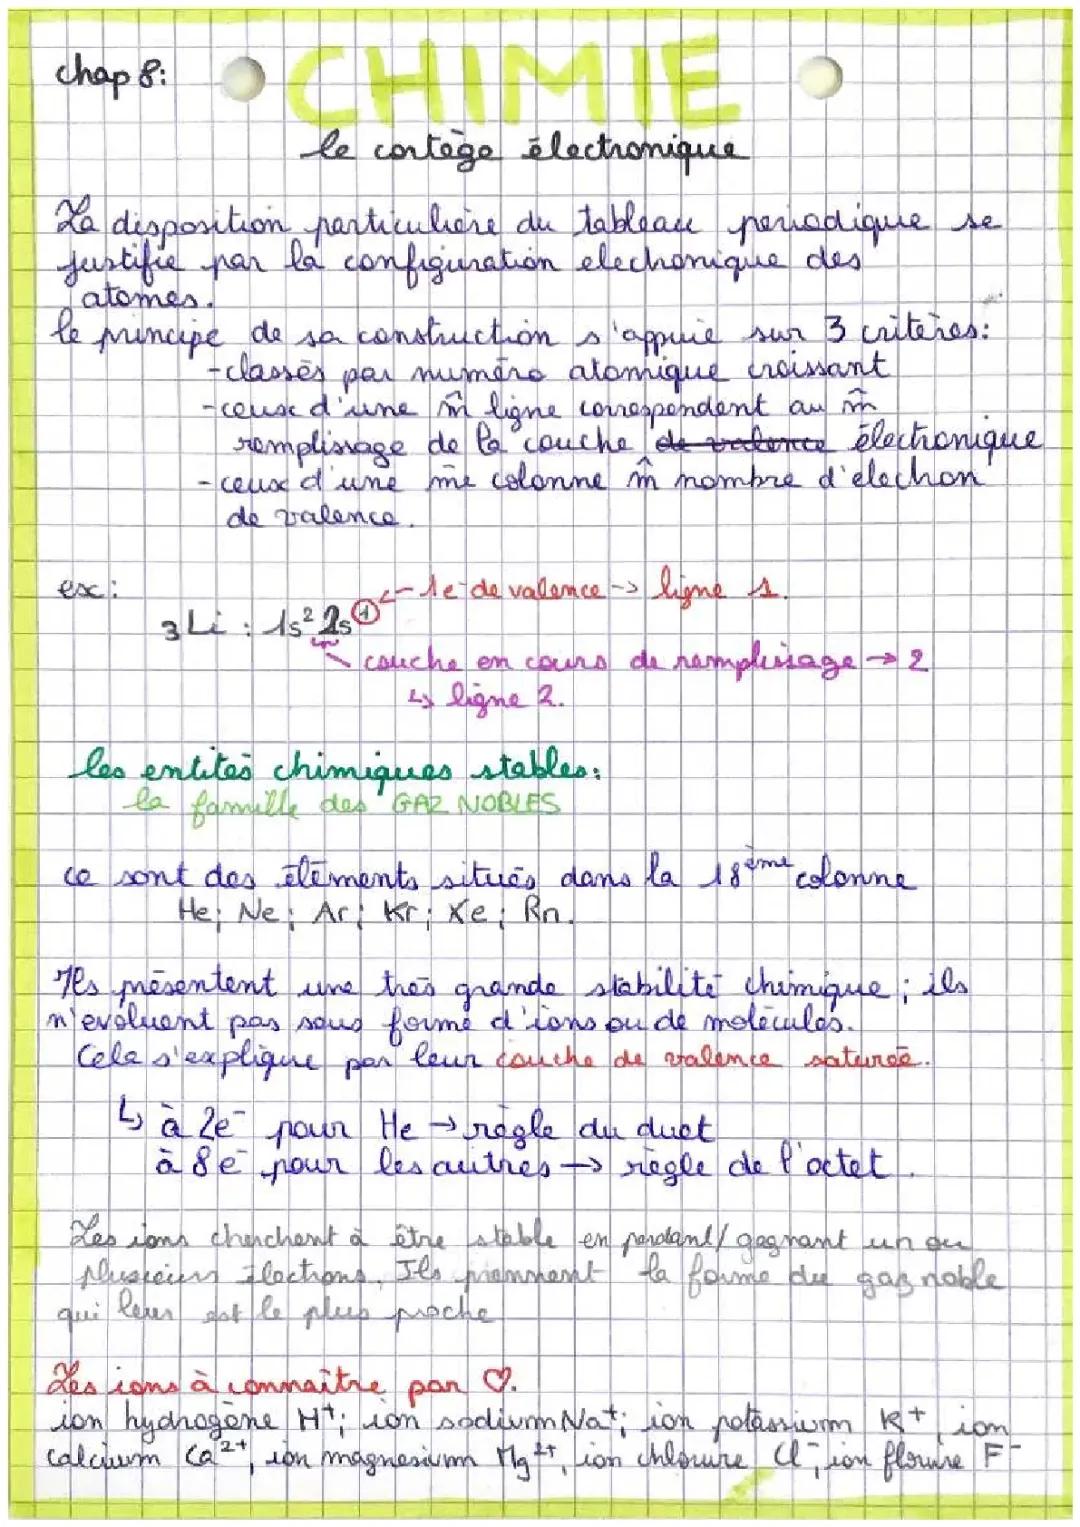 chap 8:
CHIMIE
le cortège électronique
La disposition particulière du tableau periodique se
justifie par la configuration electronique des
atomes.
le principe de sa construction s'appuie sur 3 critères:
-classés par numéro atomique croissant
-ceux d'une m̂ ligne correspondent au m̂
remplissage de la couche de valence électronique
-ceux d'une me colonne m̂ nombre d'electron
de valence.
ex:
₃Li : 1s² 2s① ← 1e⁻ de valence -> ligne 1.
couche en cours de remplissage → 2
↳ ligne 2.
les entités chimiques stables:
la famille des GAZ NOBLES
ce sont des éléments situés dans la 18ème colonne
He; Ne; Ar; Kr; Xe; Rn.
Ils présentent une très grande stabilité chimique; ils
n'evoluent pas sous forme d'ions ou de molécules.
Cela s'explique par leur couche de valence saturée.
↳ à 2e⁻ pour He → règle du duet
à 8e⁻ pour les autres → règle de l'octet.
Les ions cherchent à être stable en perdant/gagnant un ou
plusieurs électrons. Ils prennent la forme du gaz noble
qui leur est le plus proche
Les ions à connaître par ♡.
ion hydrogène H⁺; ion sodium Na⁺; ion potassium K⁺, ion
calcium Ca²⁺, ion magnesium Mg²⁺, ion chlorure Cl⁻, ion florure F⁻